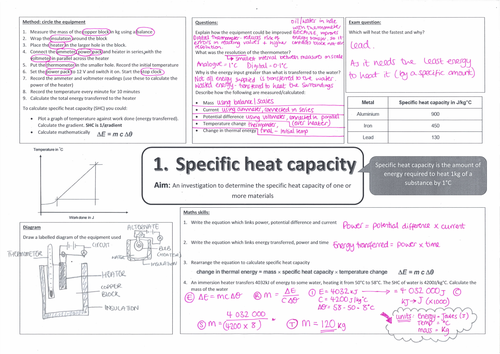 Method: circle the equipment
1. Measure the mass of the copper block in kg using a balance
2. Wrap the insulation around the block
3. Place the heater in the larger hole in the block.
4. Connect the ammeter, power pack and heater in series with the
voltmeter in parallel across the heater
5. Put the thermometer in the smaller hole. Record the initial temperature
6. Set the power pack to 12 V and switch it on. Start the stop clock
7. Record the ammeter and voltmeter readings (use these to calculate the
power of the heater)
8. Record the temperature every minute for 10 minutes
9. Calculate the total energy transferred to the heater
To calculate specific heat capacity (SHC) you could:
• Plot a graph of temperature against work done (energy transferred).
Calculate the gradient. SHC is 1/gradient
• Calculate mathematically ΔE = m c Δθ
Temperature in °C
Work done in J
Diagram
Draw a labelled diagram of the equipment used
THERMOMETER
CIRCUIT
HEATER
COPPER
BLOCK
INSULATION
ALTERNATE
BULB
WATER
INSULATION
Questions:
Explain how the equipment could be improved
oil/water in hole
with thermometer
because improves
Digital thermometer - reduces risk of
errors in reading values & higher
resolution
What was the resolution of the thermometer?
↳ smallest interval between measures in scale
Analogue = 1°C Digital = 0.1°C
Why is the energy input greater than what is transferred to the water?
Not all energy supplied is transferred to the water
Wasted energy - transferred to heat the surroundings
Describe how the following are measured/calculated:
• Mass using balance / scales
• Current using ammeter, connected in series
• Potential difference using voltmeter, connected in parallel
(over heater)
• Temperature change thermometer,
• Change in thermal energy final - initial temp
Exam question:
Which will heat the fastest and why?
Lead.
As it needs the least energy
to heat it (by a specific amount)
Metal Specific heat capacity in J/kg°C
Aluminium 900
Iron 450
Lead 130
1. Specific heat capacity
Aim: An investigation to determine the specific heat capacity of one or
more materials
Specific heat capacity is the amount of
energy required to heat 1kg of a
substance by 1°C
Maths skills:
1. Write the equation which links power, potential difference and current
Power = potential difference x current
2. Write the equation which links energy transferred, power and time
Energy transferred = power x time
3. Rearrange the equation to calculate specific heat capacity
change in thermal energy = mass × specific heat capacity × temperature change ΔE = m c Δθ
4. An immersion heater transfers 4032kJ of energy to some water, heating it from 50°C to 58°C. The SHC of water is 4200J/kg°C. Calculate the
mass of the water
Ⓔ ΔE = mcΔθ Ⓡ m = ΔE / cΔθ Ⓘ E = 4032 kJ → 4 032 000 J Ⓒ
C = 4200 J/kg°C kJ → J (x1000)
Δθ = 58 - 50 = 8°C
Ⓢ m = 4 032 000 / (4200 x 8) Ⓣ m = 120 kg
units: Energy = Joules (J)
temp = °C
mass = kg